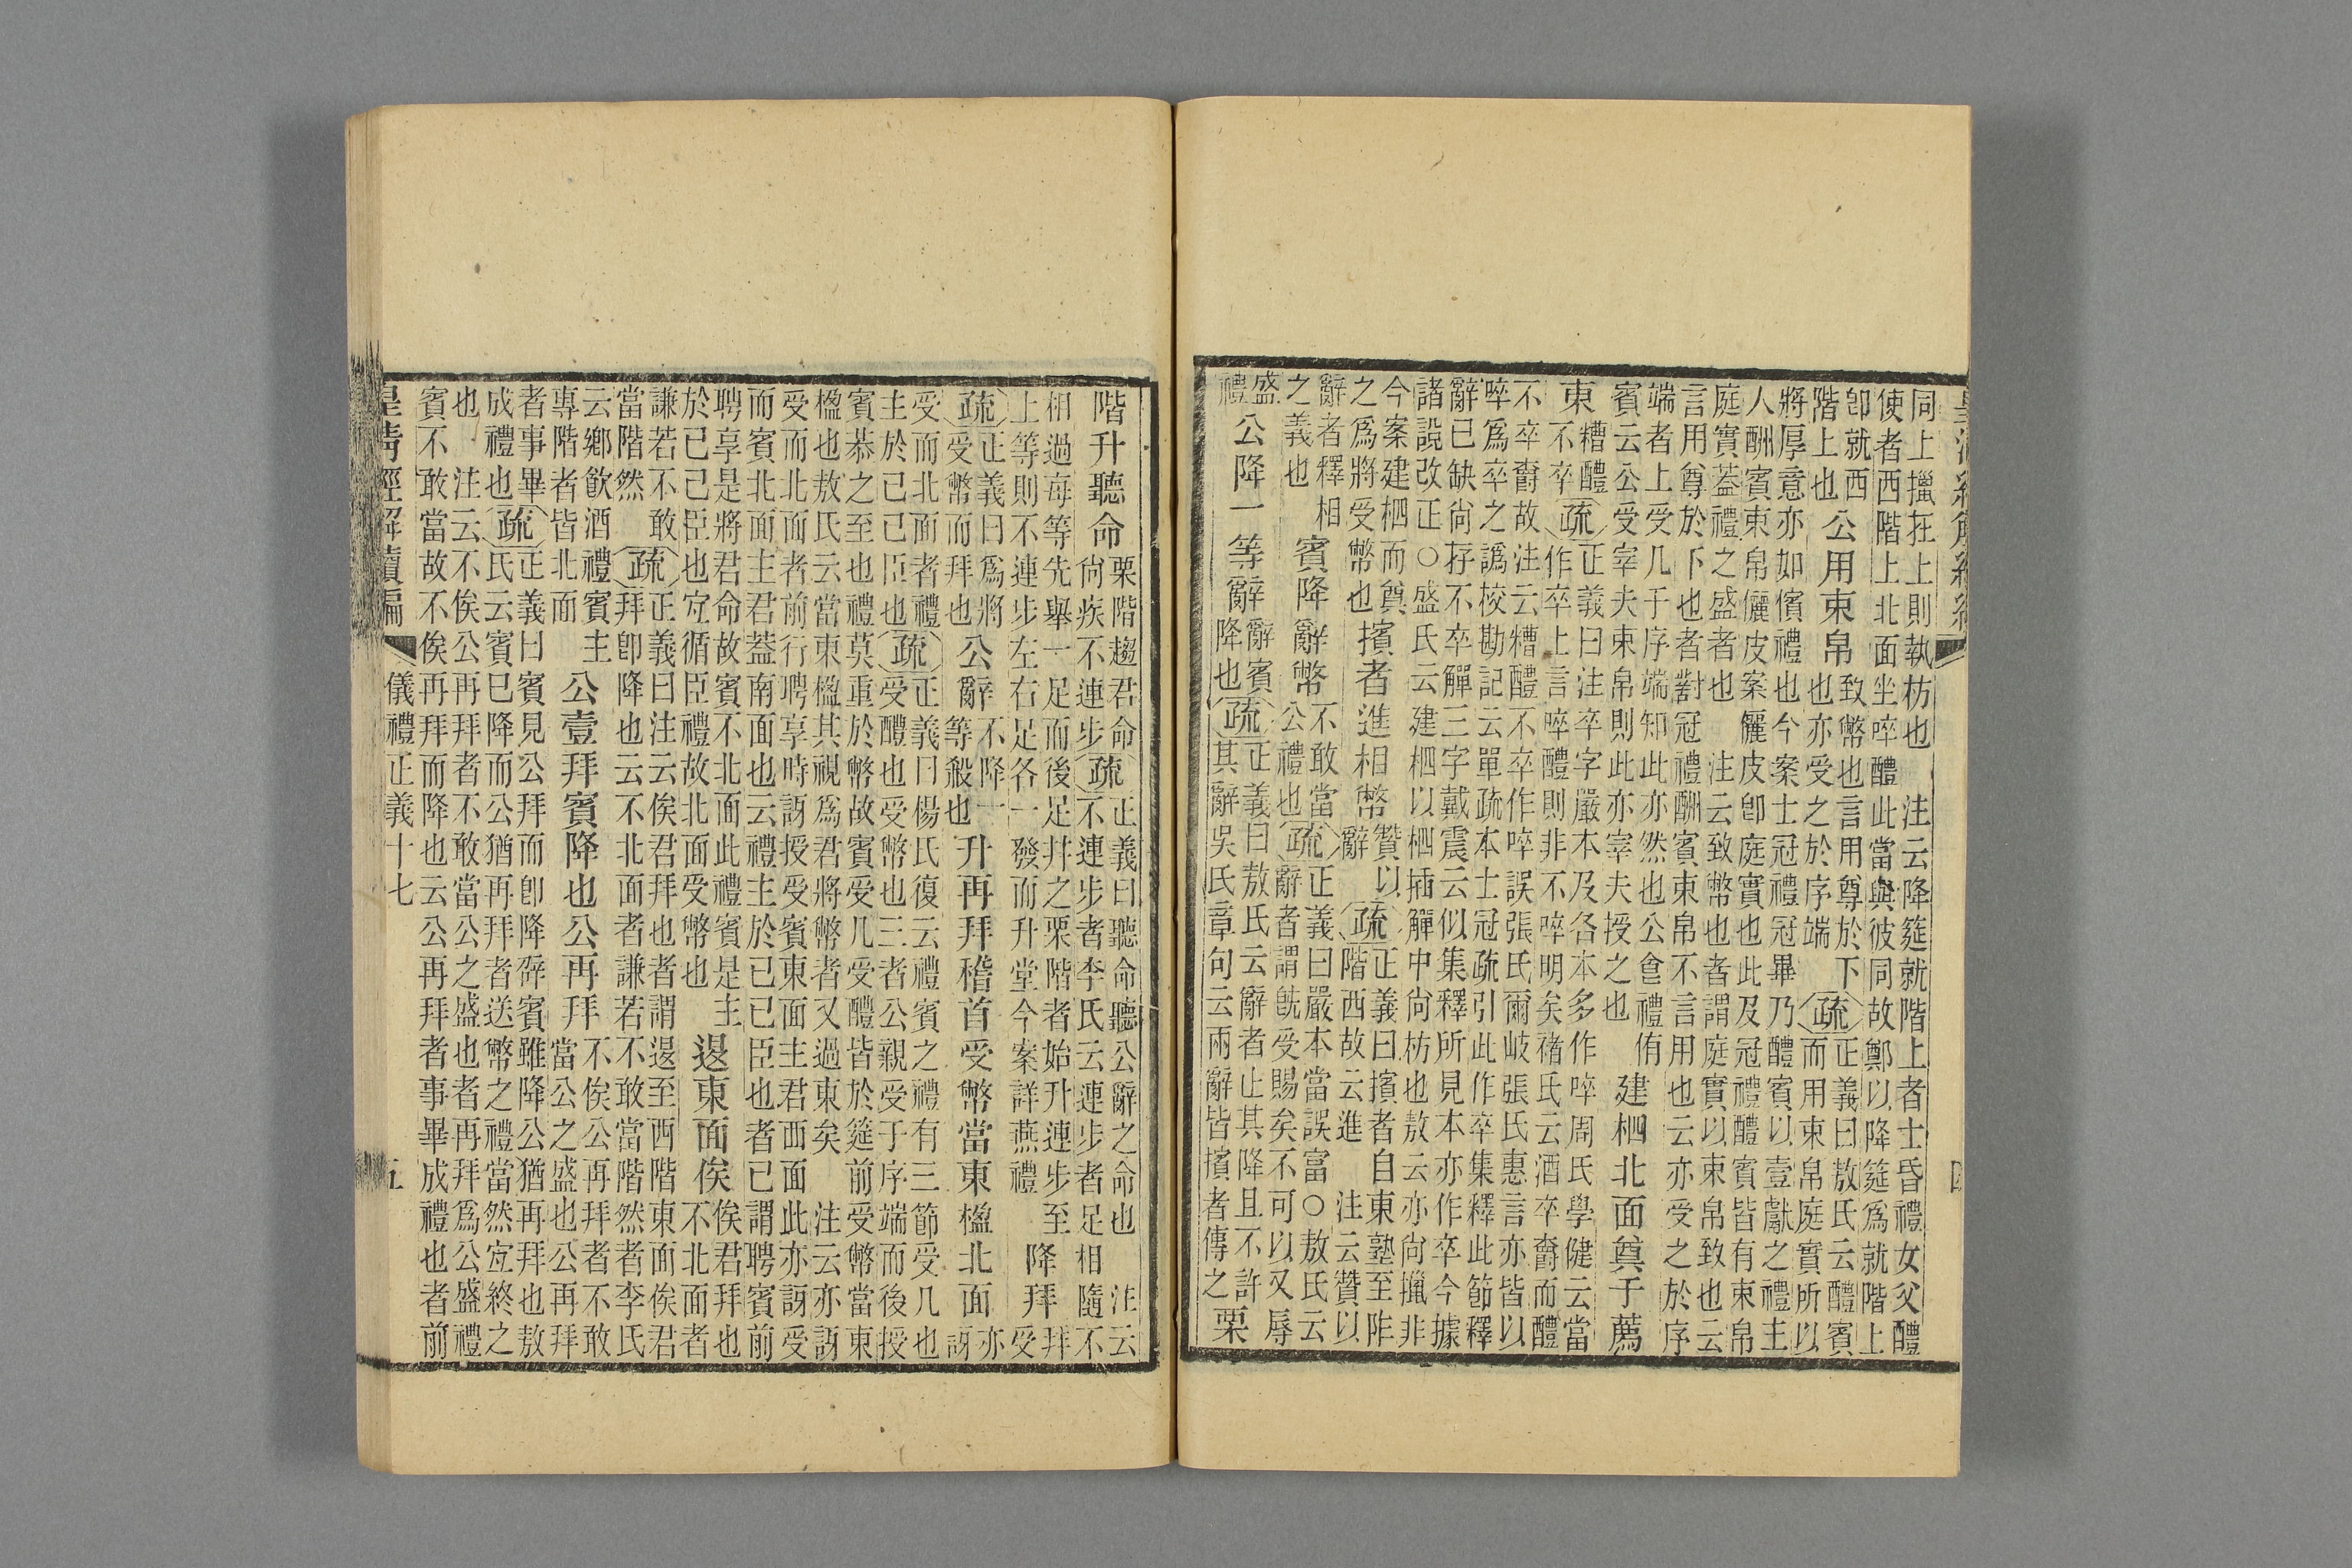 同上擸在上則執枋也　注云降筵就階上者士昏禮女父醴
使者西階上北面坐啐醴此當與彼同故鄭以降筵爲就階上
卽就西階上也公用束帛致幣也言用尊於下也亦受之於序端疏正義曰敖氏云醴賓而用束帛庭實所以
將厚意亦如儐禮也今案士冠禮冠畢乃醴賓以壹獻之禮主
人酬賓束帛儷皮案儷皮卽庭實也此及冠禮醴賓皆有束帛
庭實蓋禮之盛者也　注云致幣也者謂庭實以束帛致也云
言用尊於下也者對冠禮酬賓束帛不言用也云亦受之於序
端者上受几于序端知此亦然也公食禮侑賓云公受宰夫束帛則此亦宰夫授之也建柶北面奠于薦
東糟醴不卒疏正義曰注卒字嚴本及各本多作啐周氏學健云當作卒上言啐醴則非不啐明矣褚氏云酒卒爵而醴
不卒爵故注云糟醴不卒作啐誤張氏爾岐張氏惠言亦皆以
啐爲卒之譌校勘記云單疏本士冠疏引此作卒集釋此節釋
辭已缺尙存不卒觶三字戴震云似集釋所見本亦作卒今據
諸說改正○盛氏云建柶以柶插觶中尙枋也敖云亦尙擸非
今案建柶而奠之爲將受幣也擯者進相幣贊以辭疏正義曰擯者自東塾至阼階西故云進　注云贊以
辭者釋相之義也賓降辭幣不敢當公禮也疏正義曰嚴本當誤富○敖氏云辭者謂旣受賜矣不可以又辱
盛禮公降一等辭辭賓降也疏正義曰敖氏云辭者止其降且不許其辭吳氏章句云兩辭皆擯者傳之栗
階升聽命栗階趨君命尙疾不連步疏正義曰聽命聽公辭之命也　注云不連步者李氏云連步者足相隨不
相過每等先舉一足而後足幷之栗階者始升連步至上等則不連步左右足各一發而升堂今案詳燕禮降拜拜受
疏正義曰爲將受幣而拜也公辭不降一等殺也升再拜稽首受幣當東楹北面亦訝
受而北面者禮主於己己臣也疏正義曰楊氏復云禮賓之禮有三節受几也受醴也受幣也三者公親受于序端而後授
賓恭之至也禮莫重於幣故賓受几受醴皆於筵前受幣當東
楹也敖氏云當東楹其視爲君將幣者又過東矣　注云亦訝
受而北面者前行聘享時訝授受賓東面主君西面此亦訝受
而賓北面主君蓋南面也云禮主於己己臣也者己謂聘賓前
聘享是將君命故賓不北面此禮賓是主於己己臣也宐循臣禮故北面受幣也退東面俟俟君拜也不北面者
謙若不敢當階然疏正義曰注云俟君拜也者謂退至西階東面俟君拜卽降也云不北面者謙若不敢當階然者李氏
云鄉飮酒禮賓主專階者皆北面公壹拜賓降也公再拜不俟公再拜者不敢當公之盛也公再拜
者事畢成禮也疏正義曰賓見公拜而卽降辟賓雖降公猶再拜也敖氏云賓已降而公猶再拜者送幣之禮當然宐終之
也　注云不俟公再拜者不敢當公之盛也者再拜爲公盛禮
賓不敢當故不俟再拜而降也云公再拜者事畢成禮也者前
皇清經解續編　儀禮正義十七　五